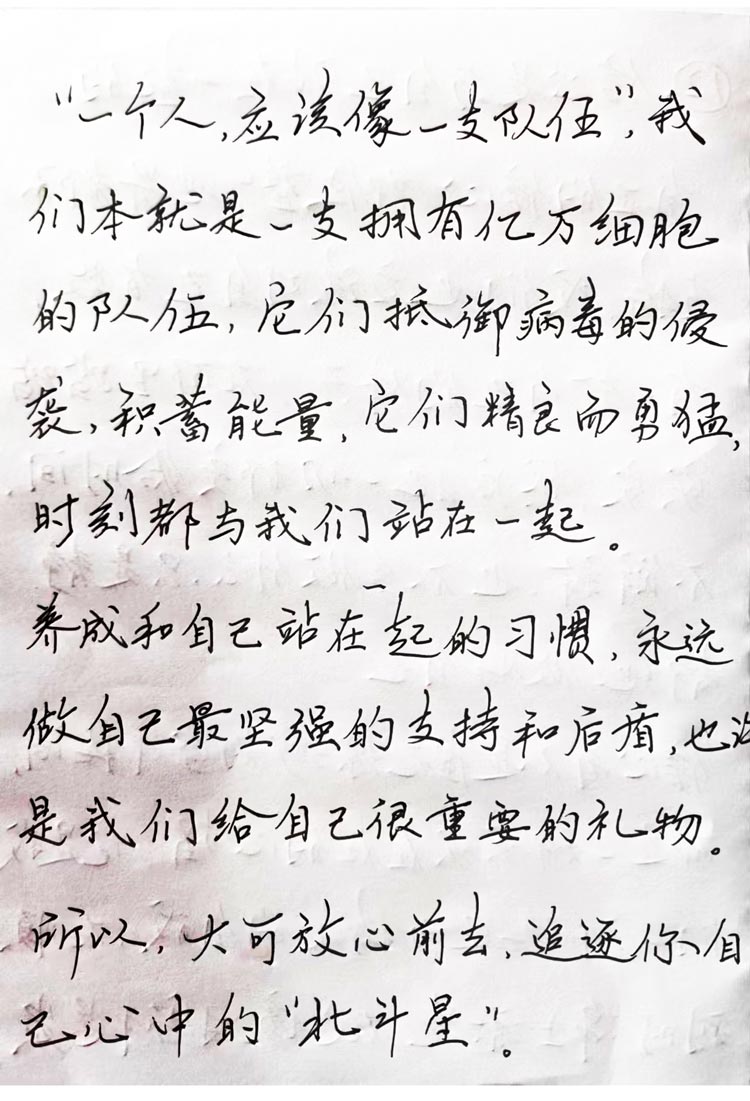 “一个人，应该像一支队伍”，我
们本就是一支拥有亿万细胞
的队伍，它们抵御病毒的侵
袭，积蓄能量，它们精良而勇猛，
时刻都与我们站在一起。
养成和自己站在一起的习惯，永远
做自己最坚强的支持和后盾，也
是我们给自己很重要的礼物。
所以，大可放心前去，追逐你自
己心中的“北斗星”。